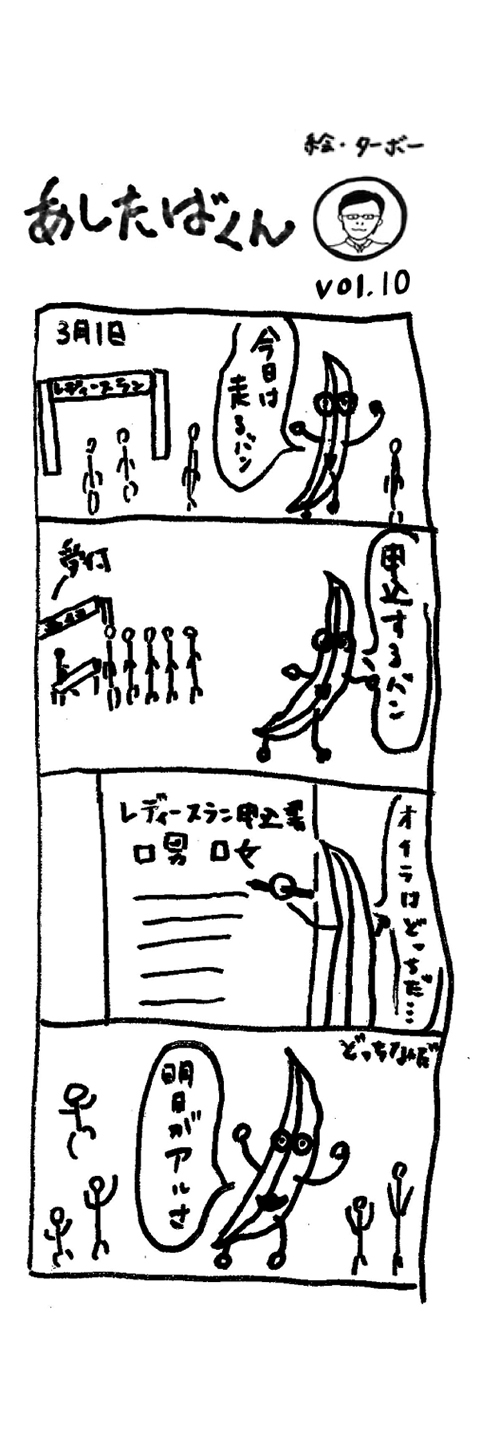 絵・ターボー
あしたばくん
vol.10
3月1日
レディースラン
今日は
走るバン
受付
申込するバン
レディースラン申込書
□男 □女
オイラはどっちだ…
どっちなんだ
明日がアルさ